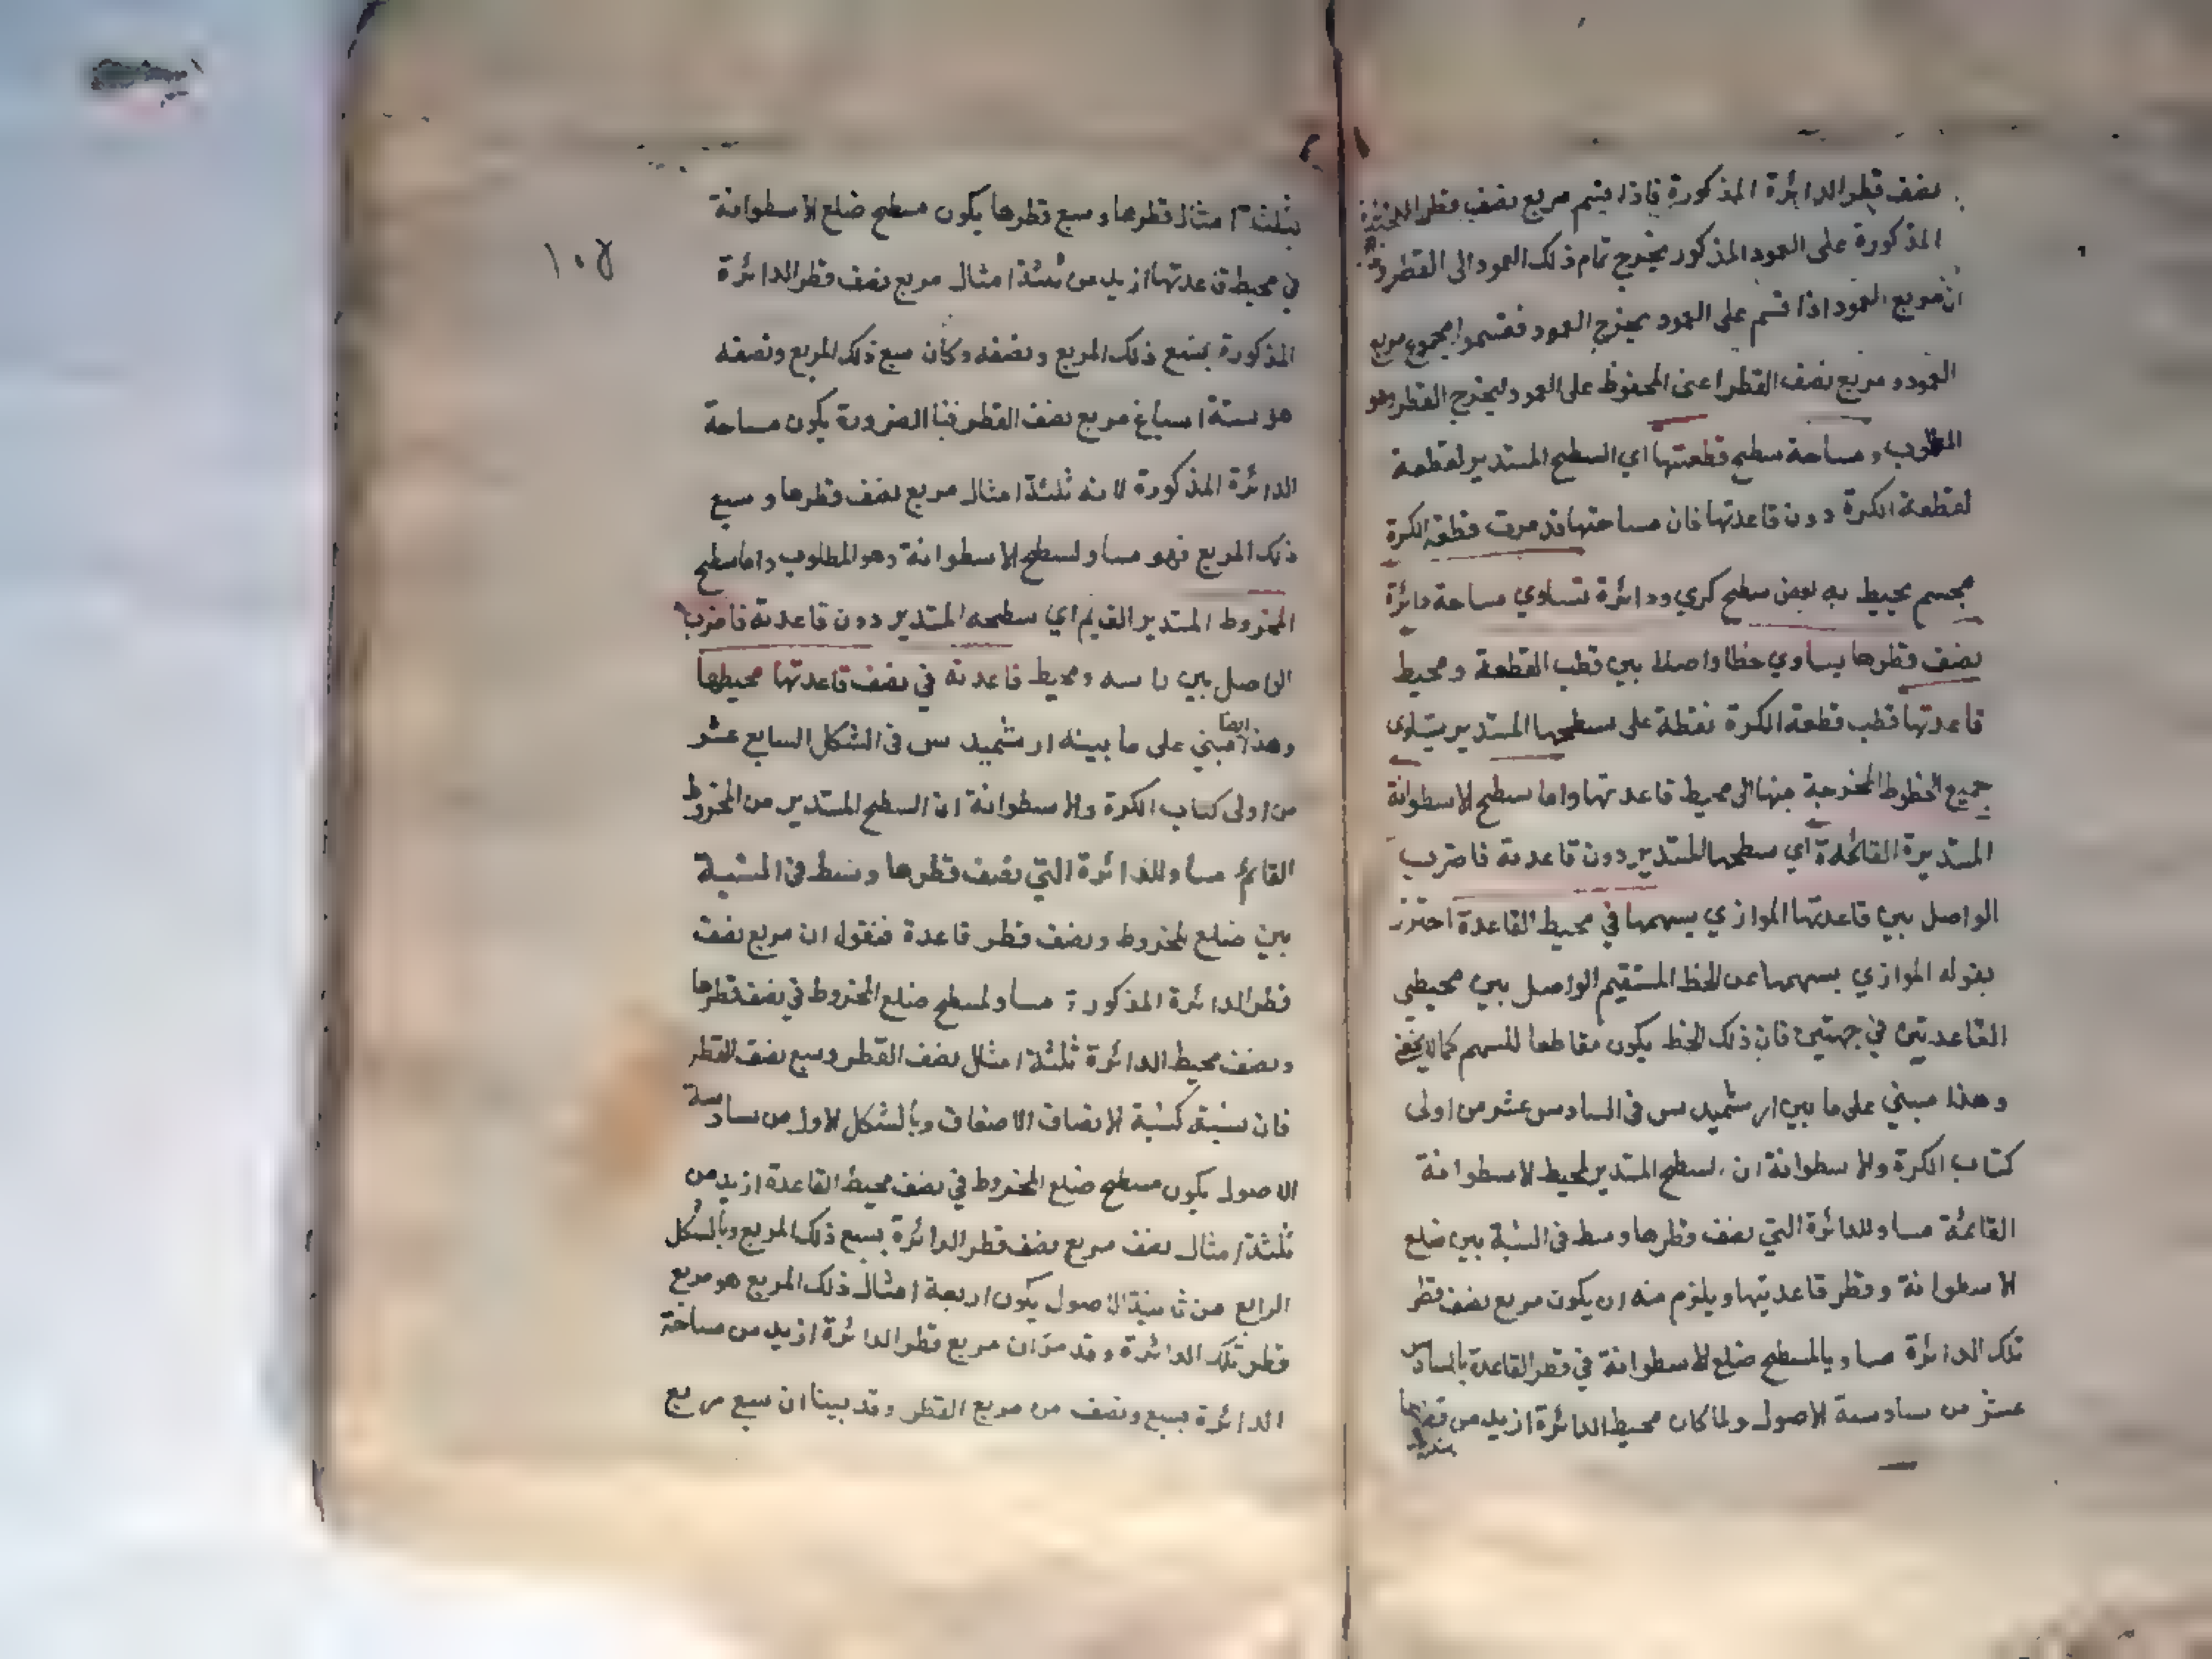 نصف قطر الدائرة المذكورة فاذا يتم مربع نصف قطر
المذكورة على العمود المذكور يخرج تمام ذلك العمود الى القطر
ان مربع العمود اذا قسم على العمود يخرج العمود فقسموا مجموع مربع
العمود و مربع نصف القطر اعنى المحفوظ على العمود ليخرج القطر وهو
المطلوب و مساحة سطح قطعتها اي السطح المستدير لقطعة
لقطعة الكرة دون قاعدتها فان مساحتها قد مرت قطعة الكرة
مجسم يحيط به بعض سطح كري ودائرة تساوي مساحة دائرة
نصف قطرها يساوي خطا واصلا بين قطب القطعة و محيط
قاعدتها قطب قطعة الكرة نقطة على سطحها المستدير يتساوى
جميع الخطوط المخرجة منها الى محيط قاعدتها واما سطح الاسطوانة
المستديرة القائمة اي سطحها المستدير دون قاعدته فاضرب
الواصل بين قاعدتها الموازي بسهمها في محيط القاعدة احترز
بقوله الموازي بسهمها عن الخط المستقيم الواصل بين محيطي
القاعدتين في جهتين فان ذلك الخط يكون مقاطعا للسهم كما لا يخفى
و هذا مبني على ما بين ارشميدس فى السادس عشر من اولى
كتاب الكرة والاسطوانة ان السطح المستدير لمحيط الاسطوانة
القائمة مساو للدائرة التي نصف قطرها وسط فى النسبة بين ضلع
الاسطوانة و قطر قاعدتها ويلزم منه ان يكون مربع نصف قطر
تلك الدائرة مساويا لمسطح ضلع الاسطوانة في قطر القاعدة بالسادس
عشر من سادسة الاصول ولما كان محيط الدائرة ازيد من قطرها
بثلثة امثال قطرها و سبع قطرها يكون مسطح ضلع الاسطوانة
في محيط قاعدتها ازيد من ثلثة امثال مربع نصف قطر الدائرة
١٠٥
المذكورة بسبع ذلك المربع و نصفه وكان سبع ذلك المربع ونصفه
هو ستة اسباع مربع نصف القطر فبا الضرورة يكون مساحة
الدائرة المذكورة لانه ثلثة امثال مربع نصف قطرها و سبع
ذلك المربع فهو مساو لسطح الاسطوانة وهو المطلوب واما سطح
المخروط المستدير القايم اي سطحه المستدير دون قاعدته فاضرب
الواصل بين راسه ومحيط قاعدته في نصف قاعدتها محيطها
وهذا ايضا مبني على ما بينه ارشميدس فى الشكل السابع عشر
من اولى كتاب الكرة والاسطوانة ان السطح المستدير من المخروط
القائم مساو للدائرة التي نصف قطرها وسط فى النسبة
بين ضلع المخروط و نصف قطر قاعدة فنقول ان مربع نصف
قطر الدائرة المذكورة مساو لمسطح ضلع المخروط في نصف قطرها
ونصف محيط الدائرة ثلثة امثال نصف القطر وسبع نصف القطر
فان نسبة كنسبة الانصاف الاضعاف وبالشكل الاول من سادسة
الاصول يكون مسطح ضلع المخروط في نصف محيط القاعدة ازيد من
ثلثة امثال نصف مربع نصف قطر الدائرة بسبع ذلك المربع وبالشكل
الرابع من ثانية الاصول يكون اربعة امثال ذلك المربع هو مربع
قطر تلك الدائرة و قد مر ان مربع قطر الدائرة ازيد من مساحة
الدائرة بسبع ونصف من مربع القطر وقد بينا ان سبع مربع